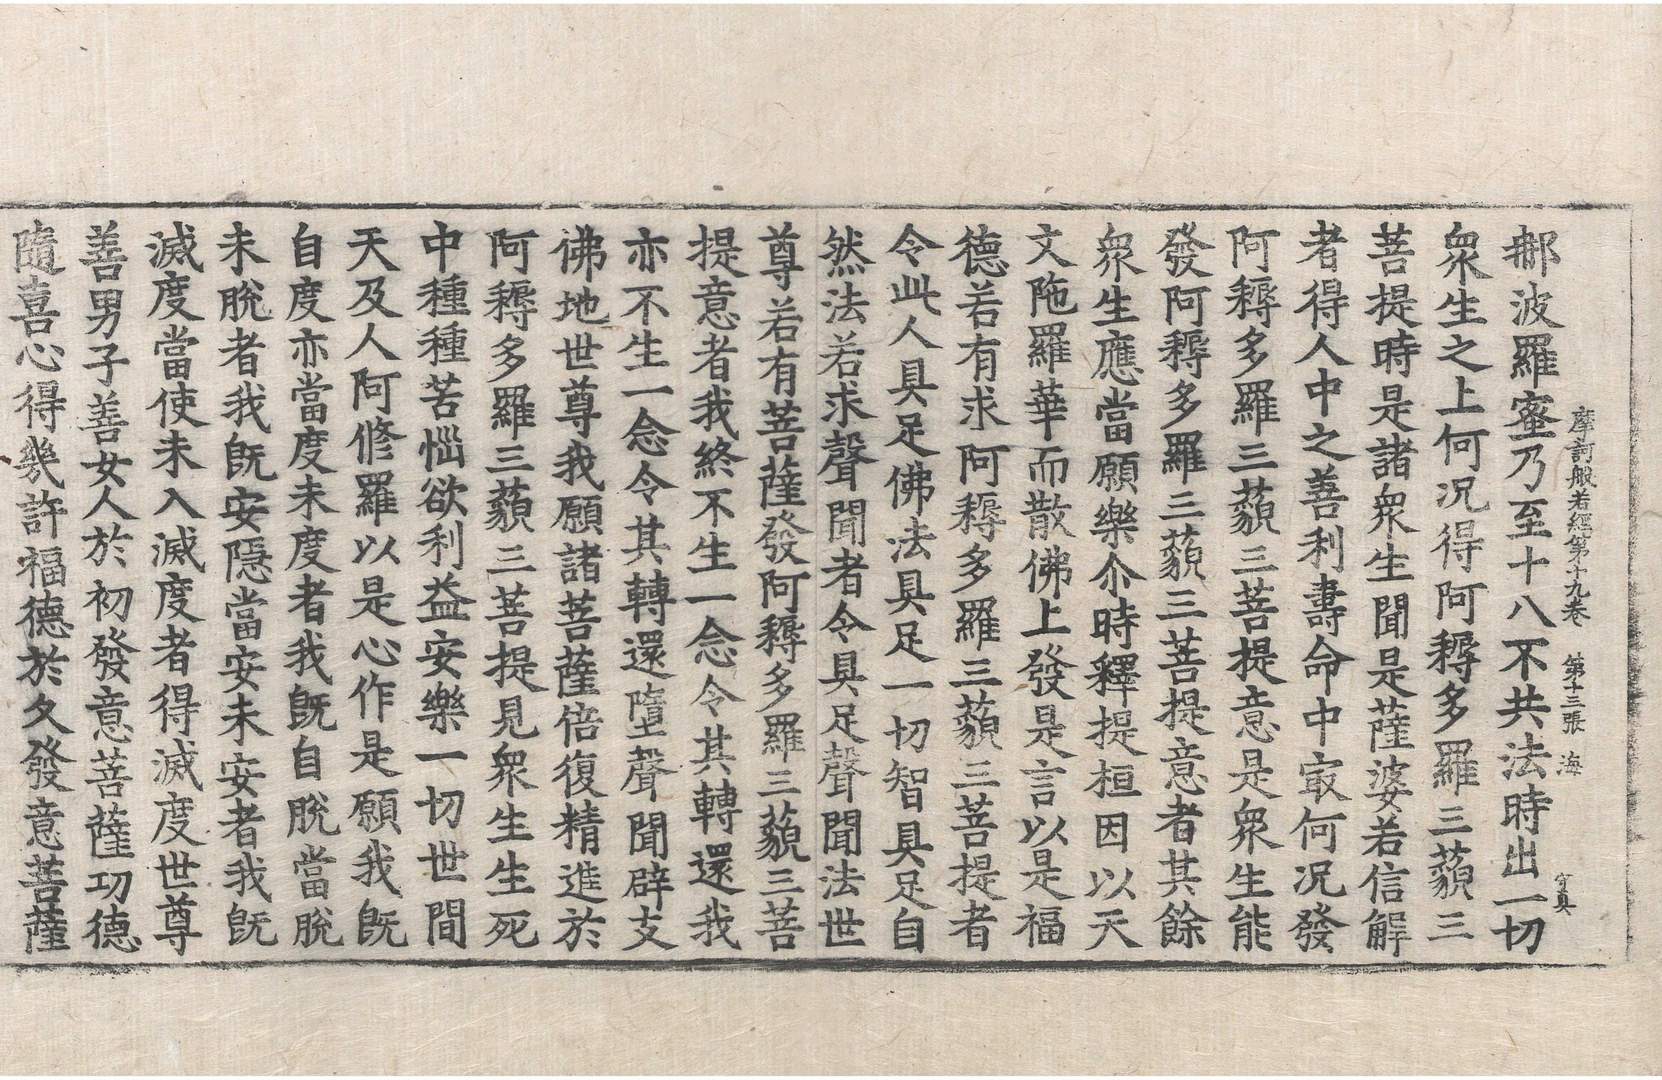 摩訶般若經第十九卷　第十三張　海
守真
䣕波羅蜜乃至十八不共法時出一切
衆生之上何况得阿耨多羅三藐三
菩提時是諸衆生聞是薩婆若信解
者得人中之善利壽命中㝡何况發
阿耨多羅三藐三菩提意是衆生能
發阿耨多羅三藐三菩提意者其餘
衆生應當願樂尒時釋提桓因以天
文陁羅華而散佛上發是言以是福
德若有求阿耨多羅三藐三菩提者
令此人具足佛法具足一切智具足自
然法若求聲聞者令具足聲聞法世
尊若有菩薩發阿耨多羅三藐三菩
提意者我終不生一念令其轉還我
亦不生一念令其轉還墮聲聞辟支
佛地世尊我願諸菩薩倍復精進於
阿耨多羅三藐三菩提見衆生生死
中種種苦惱欲利益安樂一切世間
天及人阿脩羅以是心作是願我旣
自度亦當度未度者我旣自脫當脫
未脫者我旣安隱當安未安者我旣
滅度當使未入滅度者得滅度世尊
善男子善女人於初發意菩薩功德
隨喜心得幾許福德於久發意菩薩